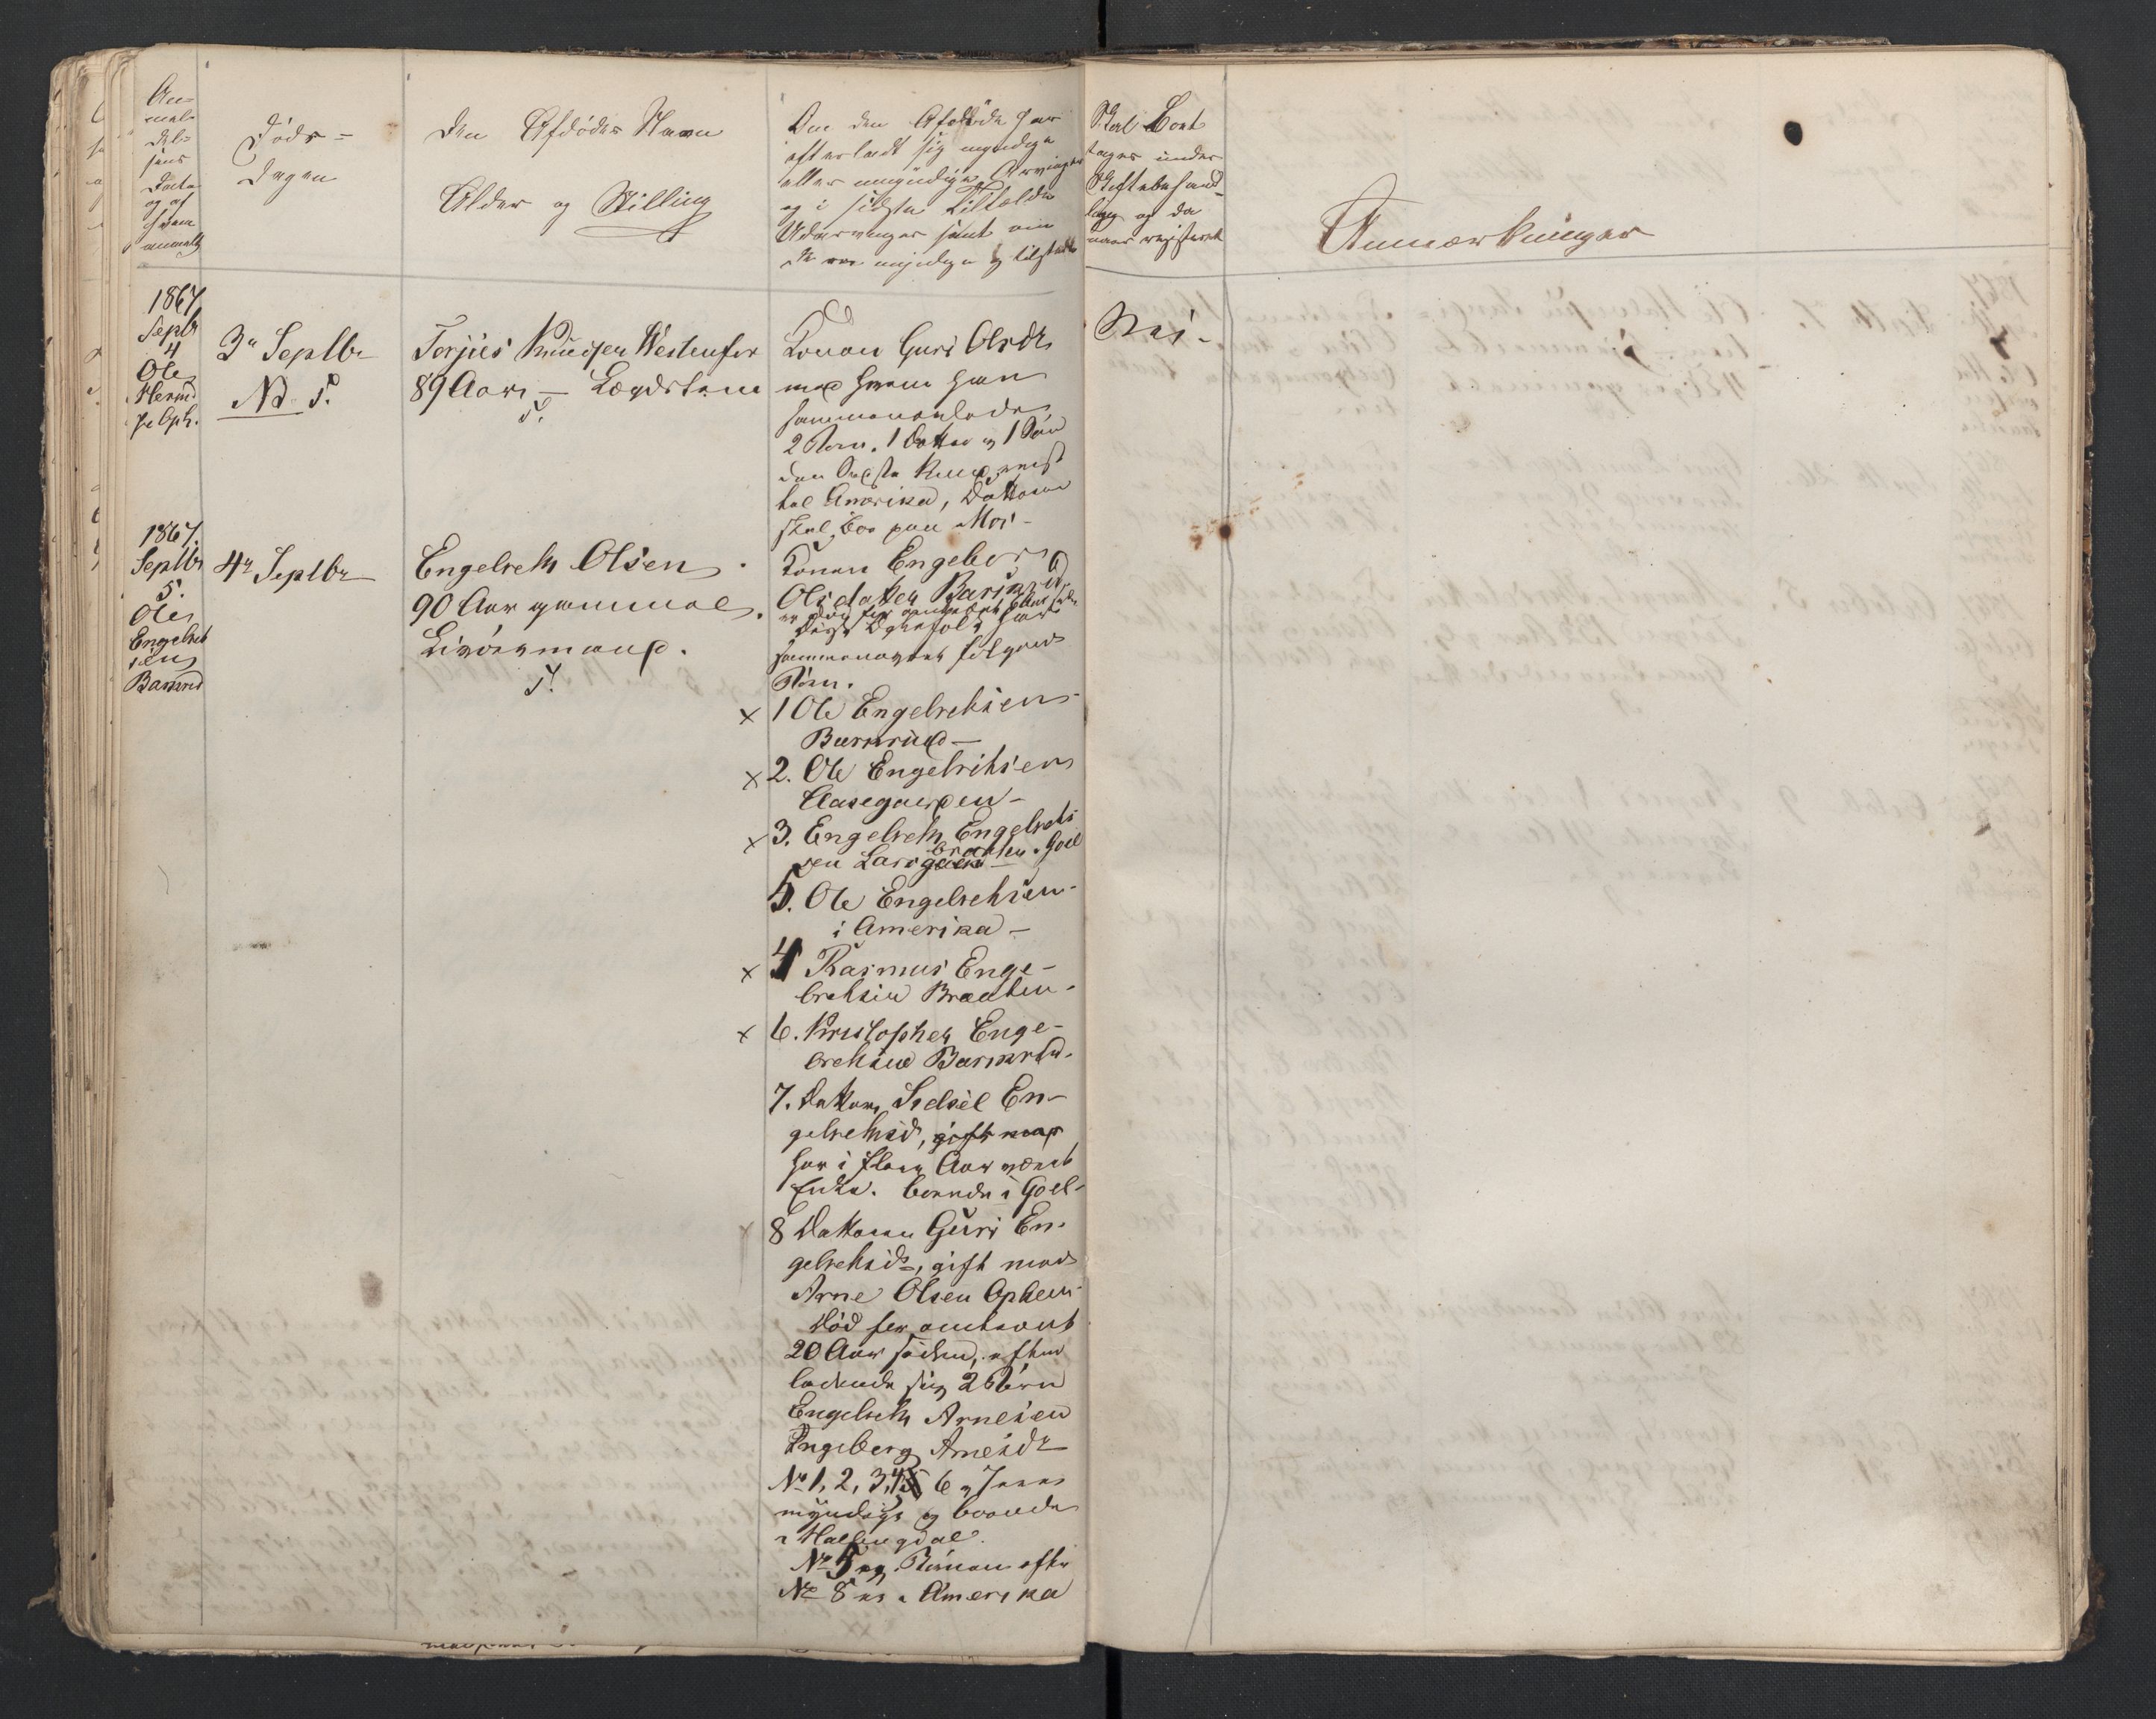 An-
mel-
del-
sens
Dato
og af
hvem
anmeldt
Døds-
dagen
Den Afdødes Navn
Alder og Stilling
Om den Afdøde har
efterladt sig myndige
eller umyndige Arvinger
og i sidste Tilfælde
Udarvinger samt om
de ere myndige og tilstede
Skal Boet
tages under
Skiftebehand-
ling og da
naar registreret
Anmærkninger
1867
Septbr
4
Ole
3die Septbr
No 5.
Torjus Knudsen Westenfor
89 Aar — Lægdslem
5.
Konen Guri Olsdtr
med hvem han
sammenavlede
2 Børn. 1 Datter og 1 Søn
den sidste reist
til Amerika, Datteren
skal boe paa Mo
Nei -
1867.
Septbr
5.
Ole
Engelret
sen
Barnrud
4de Septbr
Engelreth Olsen
90 Aar gammel
Livøremand.
5.
Konen Engebor
Olsdatter Barnrud
har
sammenavlet følgende
Børn.
x 1 Ole Engelrethsen
Barnrud —
x 2. Ole Engelrethsen
Aasegarden -
x 3. Engelreth Engelreth
sen Larsgaard Braaten. Goel
5. Ole Engelrethsen
i Amerika -
x 4 Rasmus Enge-
brethsen Braaten -
x 6. Kristopher Enge-
brethsen Barnrud.
7. Datteren Sidsel En-
gelrethsd, gift med
har i flere Aar været
Enke. boende i Goel -
x 8 Datteren Guri En-
gelrethsdr, gift med
Arne Olsen Ophem
død for omtrent
20 Aar siden, efter
ladende sig 2 Børn
Engelreth Arnesen
Ingeborg Arnesdr
No 1, 2, 3, 4 6 og 7 ere
myndige og boende
i Hallingdal.
No 5 og Børnene efter
No 8 er i Amerika